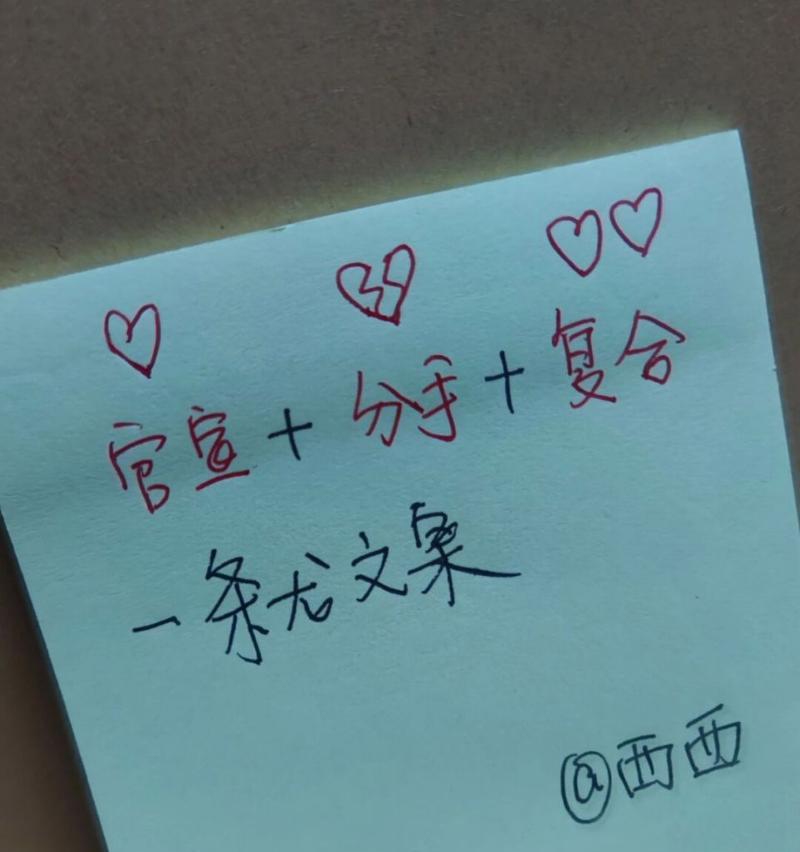 官宣+分手+复合
一条龙文案
@西西